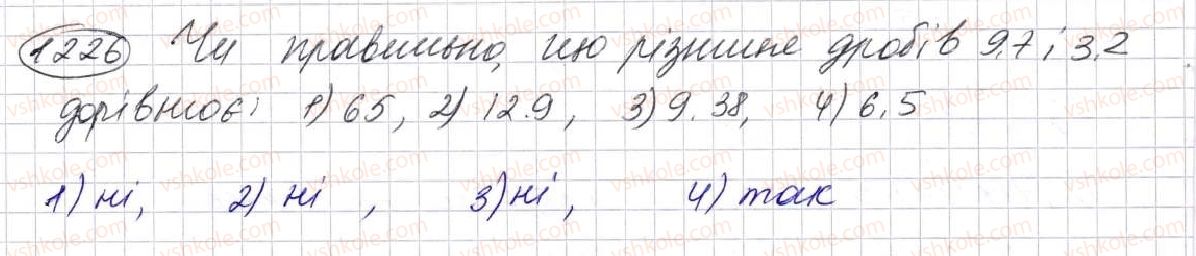 1226 Чи правильно, що різниця дробів 9.7 і 3.2
дорівнює: 1) 65, 2) 12.9, 3) 9.38, 4) 6.5
1) ні, 2) ні, 3) ні, 4) так